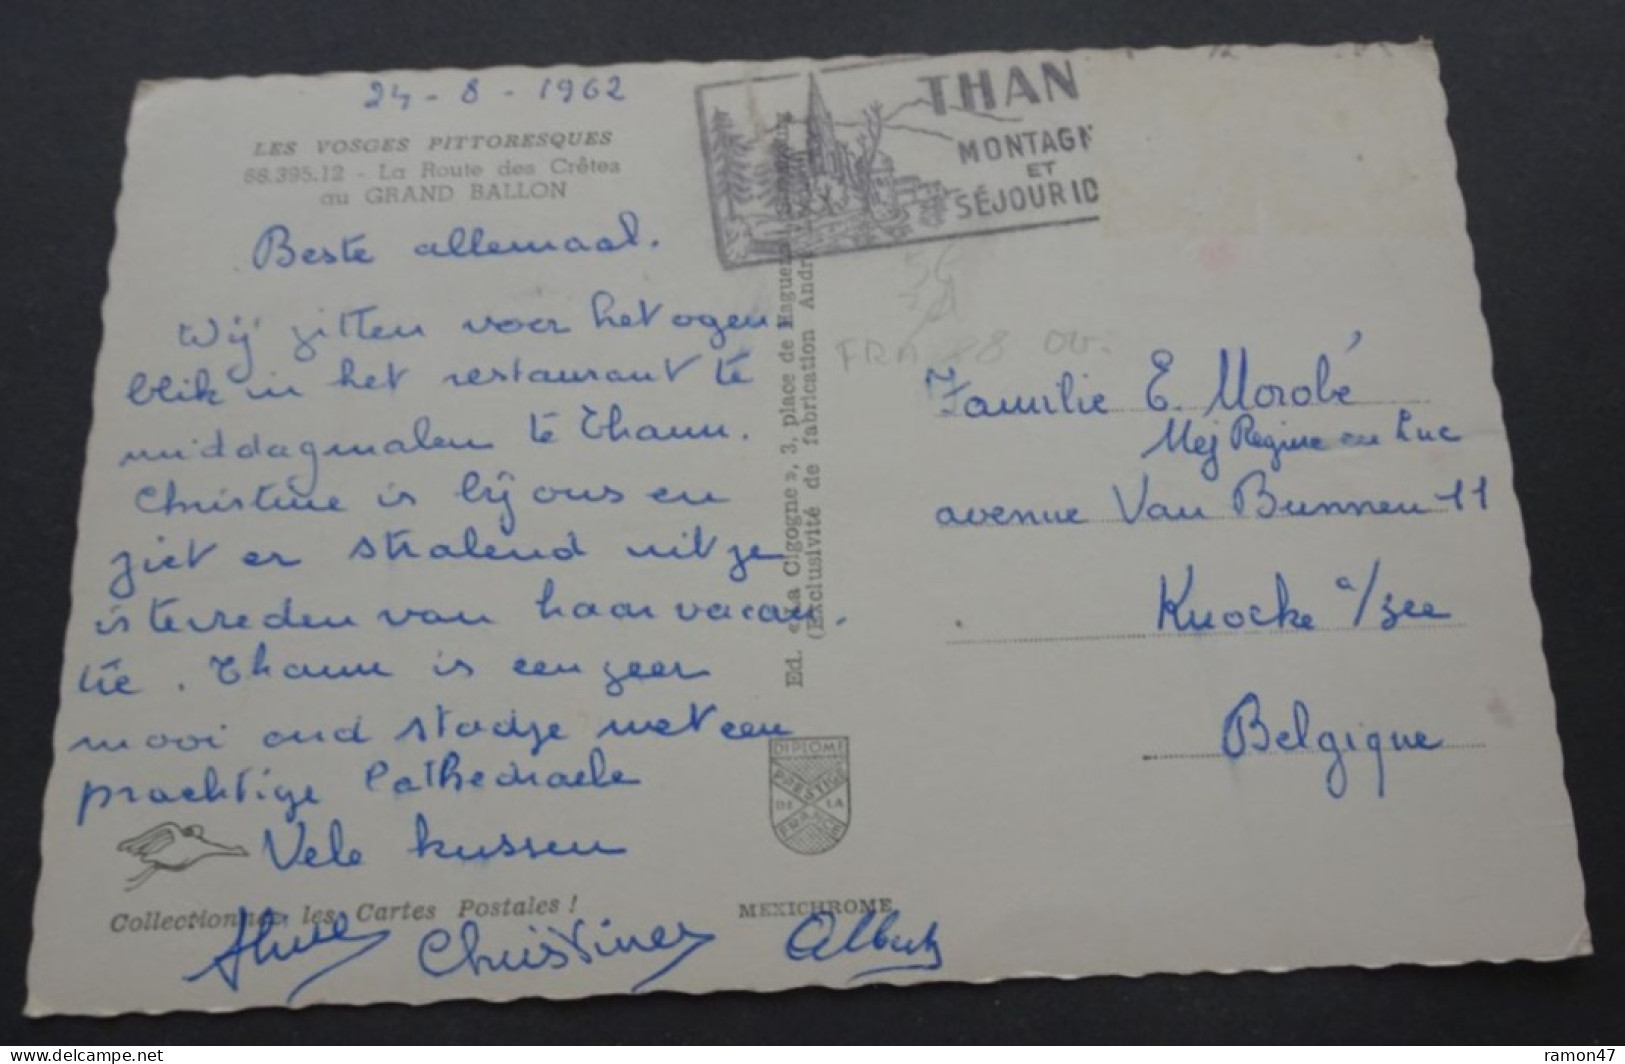 24 - 8 - 1962
LES VOSGES PITTORESQUES
68.395.12 - La Route des Crêtes
au GRAND BALLON
Beste allemaal.
Wij zitten voor het ogen
blik in het restaurant te
middagmalen te Thann.
Christine is bij ons en
ziet er stralend uit ze
is tevreden van haar vacan
tie. Thann is een zeer
mooi oud stadje met een
prachtige Cathedraele
Vele kussen
Collectionnez les Cartes Postales !
Christine
Albert
MEXICHROME
DIPLOME
PRESTIGE
DE LA
FRANCE
Ed. « La Cigogne », 3, place de Haguenau
(Exclusivité de fabrication André
THAN
MONTAGN
ET
SÉJOUR ID
FRA
Familie E. Morobé
Mej Regine en Luc
avenue Van Bunnen 11
Knocke a/zee
Belgique
ramon47